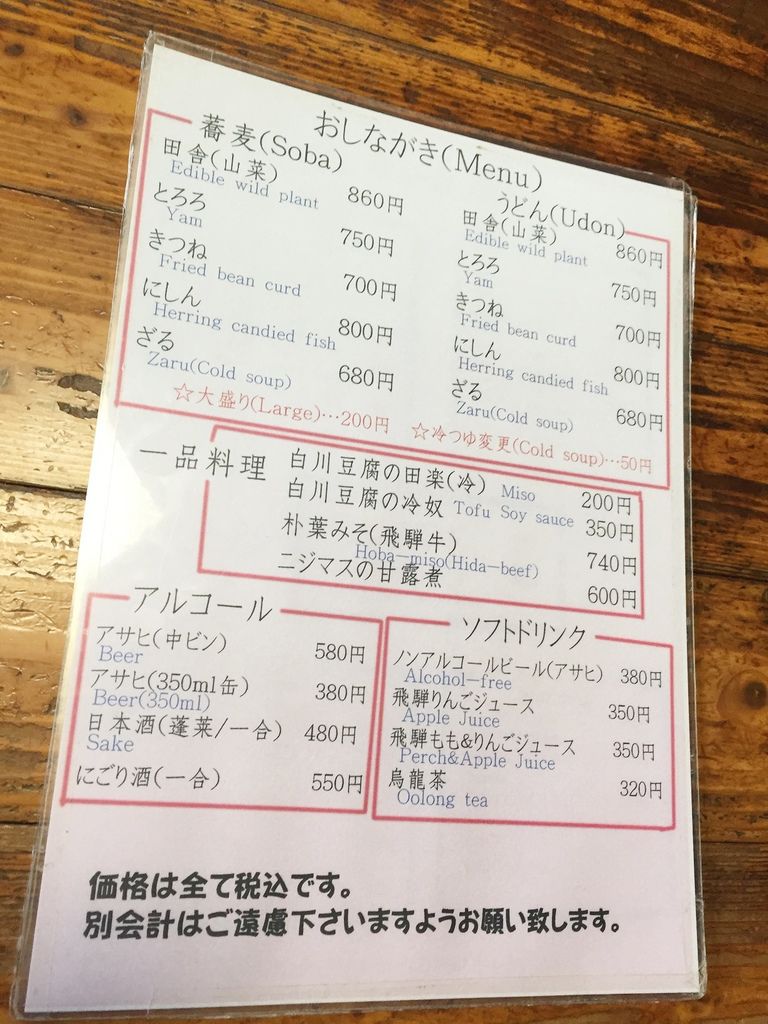 おしながき(Menu)
蕎麦(Soba)
田舎(山菜) 860円
Edible wild plant
とろろ 750円
Yam
きつね 700円
Fried bean curd
にしん 800円
Herring candied fish
ざる 680円
Zaru(Cold soup)
☆大盛り(Large)…200円
うどん(Udon)
田舎(山菜) 860円
Edible wild plant
とろろ 750円
Yam
きつね 700円
Fried bean curd
にしん 800円
Herring candied fish
ざる 680円
Zaru(Cold soup)
☆冷つゆ変更(Cold soup)…50円
一品料理
白川豆腐の田楽(冷) Miso 200円
白川豆腐の冷奴 Tofu Soy sauce 350円
朴葉みそ(飛騨牛) 740円
Hoba-miso(Hida-beef)
ニジマスの甘露煮 600円
アルコール
アサヒ(中ビン) 580円
Beer
アサヒ(350ml缶) 380円
Beer(350ml)
日本酒(蓬莱/一合) 480円
Sake
にごり酒(一合) 550円
ソフトドリンク
ノンアルコールビール(アサヒ) 380円
Alcohol-free
飛騨りんごジュース 350円
Apple Juice
飛騨もも&りんごジュース 350円
Perch&Apple Juice
烏龍茶 320円
Oolong tea
価格は全て税込です。
別会計はご遠慮下さいますようお願い致します。